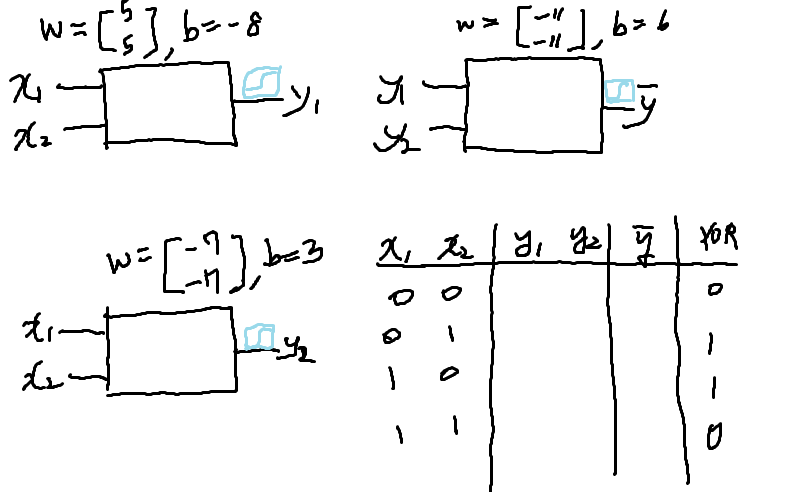 w = [5 5], b = -8
x₁
x₂
y₁
w = [-11 -11], b = 6
y₁
y₂
ȳ
w = [-7 -7], b = 3
x₁
x₂
y₂
x₁ x₂ y₁ y₂ ȳ XOR
0 0 0
0 1 1
1 0 1
1 1 0